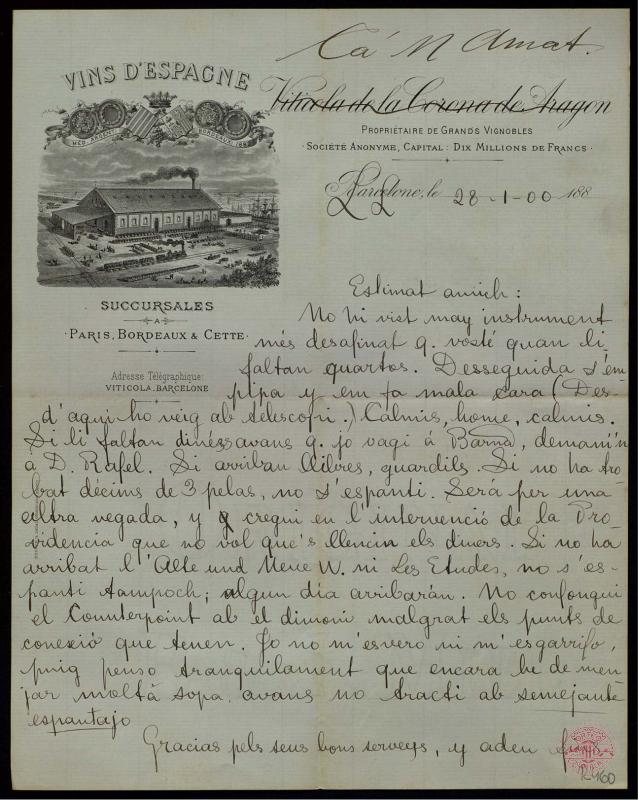 Cá N Amat.
VINS D'ESPAGNE
Viticola de la Corona de Aragon
PROPRIÉTAIRE DE GRANDS VIGNOBLES
SOCIÉTÉ ANONYME, CAPITAL: DIX MILLIONS DE FRANCS
MED. ARGENT BORDEAUX 188
Barcelone, le 28-1-00 188
SUCCURSALES
A
PARIS, BORDEAUX & CETTE
Adresse Télégraphique:
VITICOLA. BARCELONE
Estimat amich:
No hi vist may instrument
més desafinat q. vosté quan li
faltan quartos. Desseguida s'em
pipa y em fa mala cara (Des-
d'aquí ho veig ab telescopi.) Calmis, home, calmis.
Si li faltan diners avans q. jo vagi á Barna, demani'n
á D. Rafel. Si arriban llibres, guardils. Si no ha tro
bat décims de 3 pelas, no s'espanti. Será per una
altra vegada, y cregui en l'intervenció de la Pro
videncia que no vol que's llencin els diners. Si no ha
arribat l'Alte und Neue W. ni Les Etudes, no s'es-
panti tampoch; algun dia arribarán. No confongui
el Counterpoint ab el dimoni malgrat els punts de
conexió que tenen. Jo no m'esvero ni m'esgarrifo,
puig penso tranquilament que encara he de men
jar molta sopa avans no tracti ab semejante
espantajo
Gracias pels seus bons serveys, y adeu
R.460